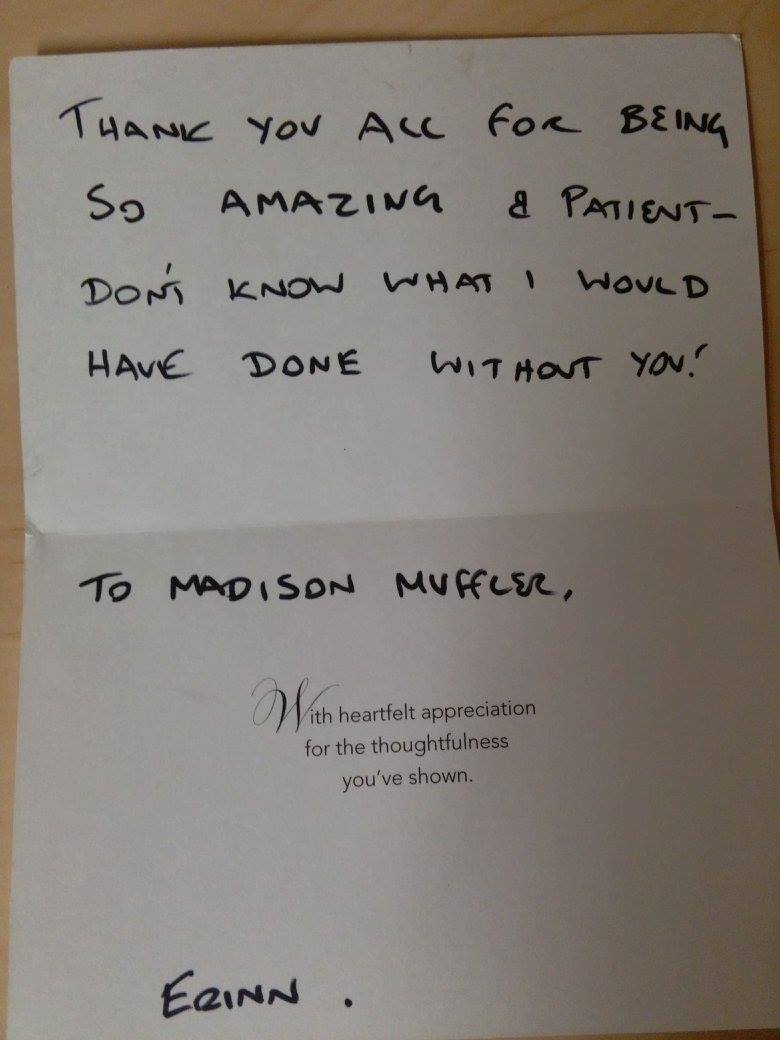 THANK YOU ALL FOR BEING
SO AMAZING & PATIENT-
DON'T KNOW WHAT I WOULD
HAVE DONE WITHOUT YOU!
TO MADISON MUFFLER,
With heartfelt appreciation
for the thoughtfulness
you've shown.
ERINN.